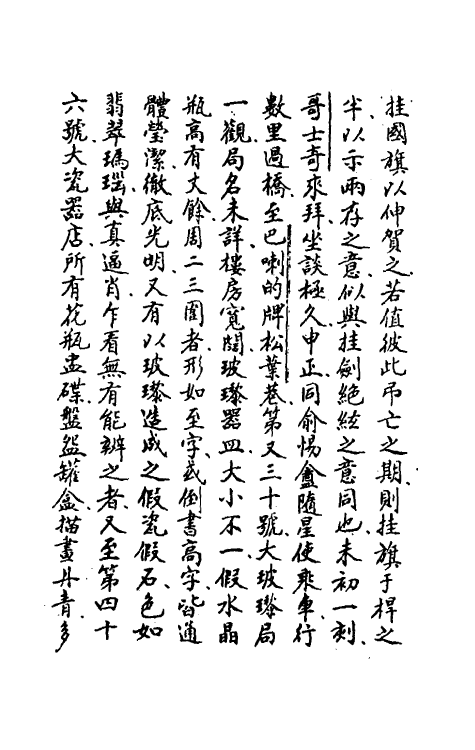 挂國旗以伸賀之若值彼此吊亡之期則挂旗于桿之
半以示兩存之意似與挂劍絕絃之意同也未初一刻
哥士奇來拜坐談極久申正同俞惕盦隨星使乘車行
數里過橋至巴喇的牌松葉巷第又三十號大玻璨局
一觀局名未詳樓房寬闊玻璨器皿大小不一假水晶
瓶高有丈餘周二三圍者形如至字或倒書高字皆通
體瑩潔徹底光明又有以玻璨造成之假瓷假石色如
翡翠瑪瑙與真逼肖乍看無有能辨之者又至第四十
六號大瓷器店所有花瓶盂碟盤盌罐盒描畫丹青多